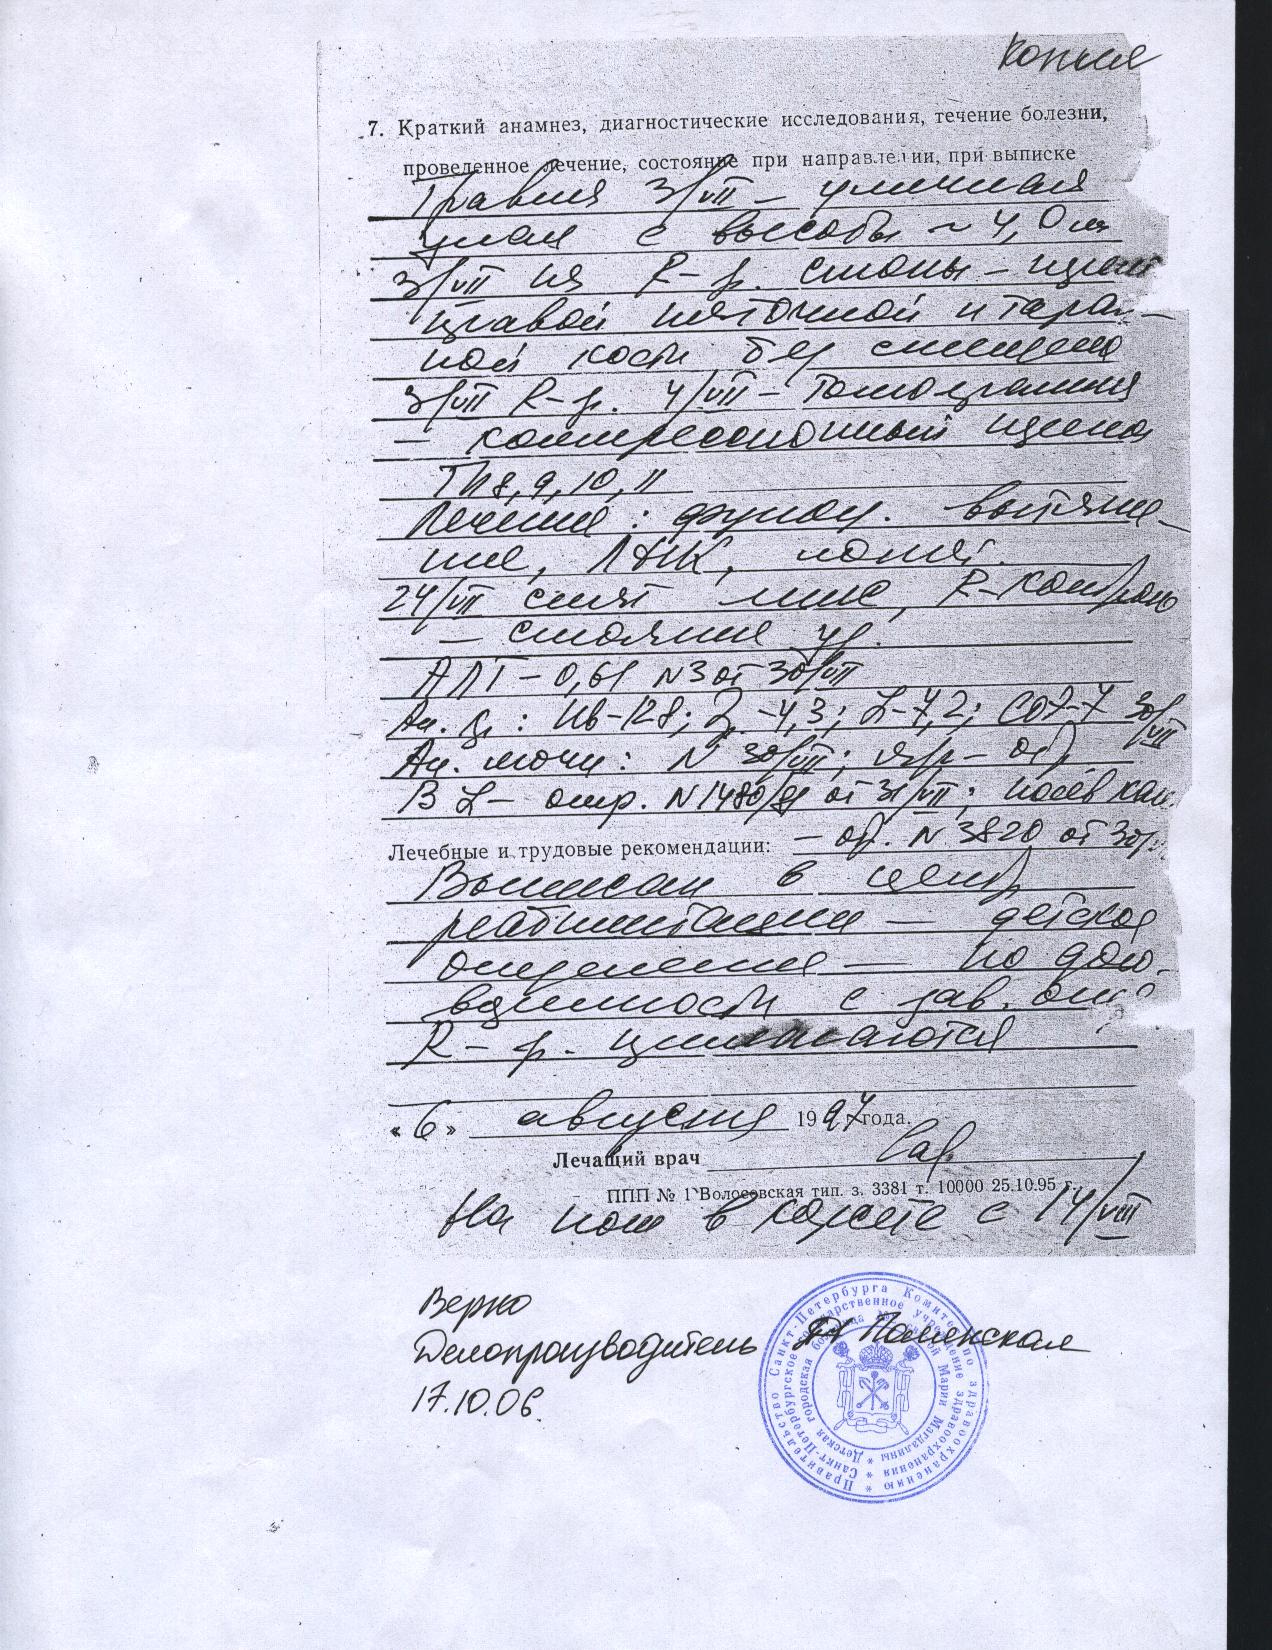 Копия
7. Краткий анамнез, диагностические исследования, течение болезни,
проведенное лечение, состояние при направлении, при выписке
Травма 3/VII – уличная
упал с высоты ~ 4,0 м
3/VII на R-гр. стопы –
правой пяточной и таран-
ной кости без смещения
3/VII R-гр. 4/VII – Томограмма
– компрессионный перелом
Th 8, 9, 10, 11
Лечение: функц. вытяже-
ние, ЛФК,
24/VII снят гипс, R-контроль
– стояние уд.
АЛТ – 0,61 N3 от 30/VII
Ан. кр.: Hb-128; Э. -4,3; L-7,2; СОЭ-7 30/VII
Ан. мочи: N 30/VII; – отр.
B L – отр. N 1480/ от 31/VII; посев кал
– отр. N 3820 от 30/
Лечебные и трудовые рекомендации:
Выписан в центр
реабилитации — детское
отделение — по дого-
воренности с зав. отд.
R-гр. прилагаются
« 6 » августа 1997 года.
Лечащий врач
ППП № 1 Волосовская тип. з. 3381 т. 10000 25.10.95 г.
На ноги в корсете с 14/VIII
Верно
Делопроизводитель Полянская
17.10.06.
Правительство Санкт-Петербурга Комитет по здравоохранению
Санкт-Петербургское государственное учреждение здравоохранения
Детская городская больница святой Марии Магдалины